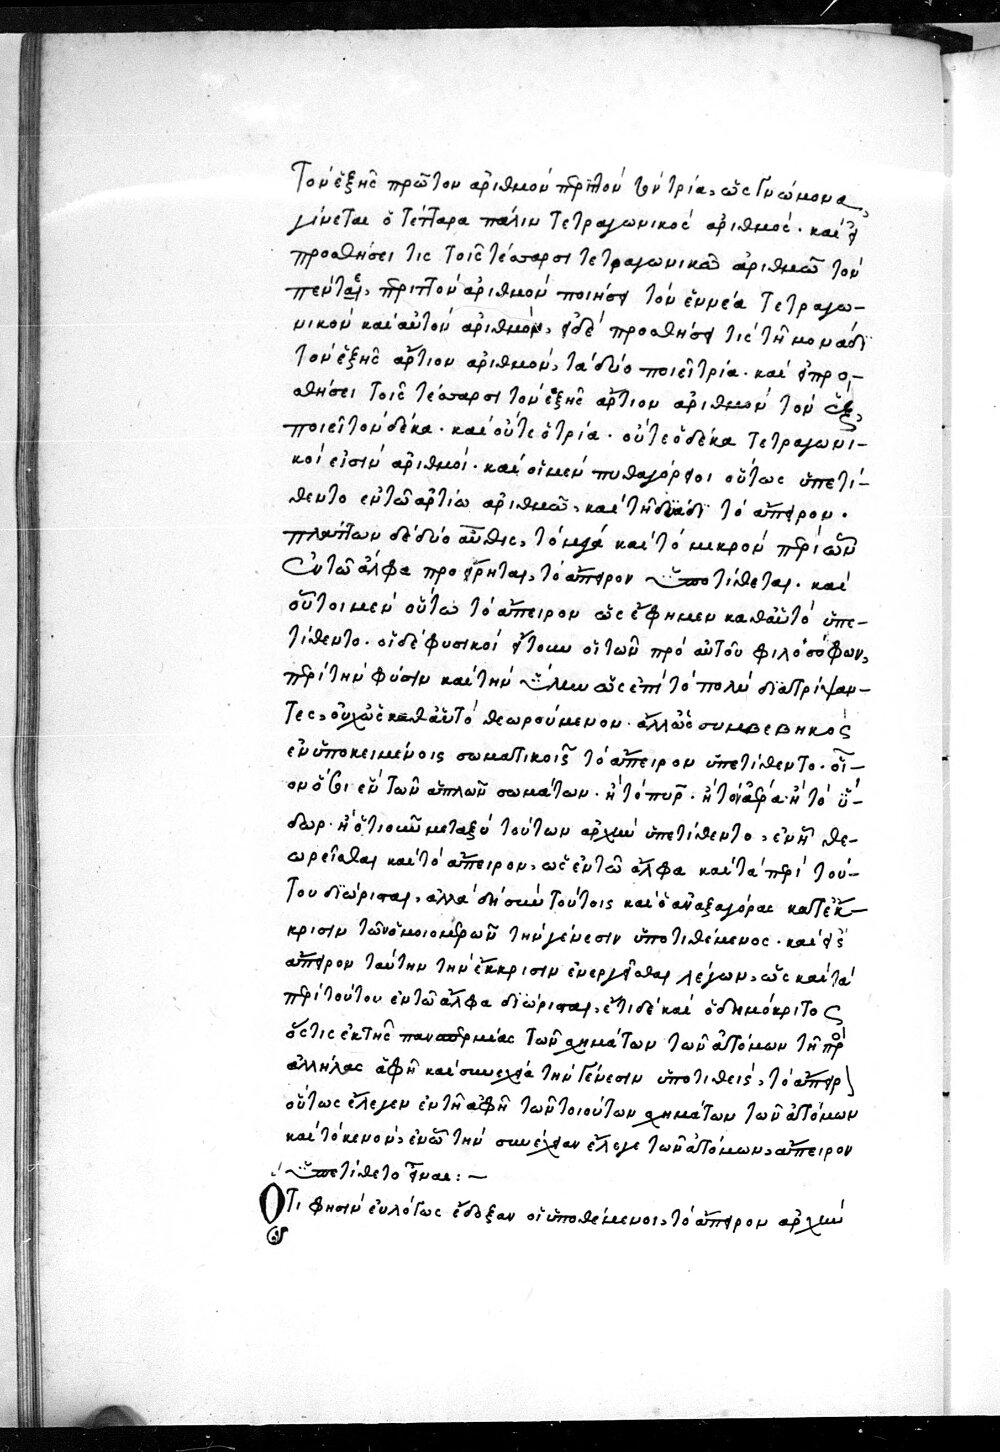 Τὸν ἑξῆς πρῶτον ἀριθμὸν περιττὸν τὸν τρία, ὡς γνώμονα,
γίνεται ὁ τέτταρα πάλιν τετραγωνικὸς ἀριθμός· καὶ εἰ
προσθήσει τις τοῖς τέσσαρσι τετραγωνικῶ ἀριθμῶ τὸν
πέντε, περιττὸν ἀριθμὸν ποιήσει τὸν ἐννέα τετραγω-
νικὸν καὶ αὐτὸν ἀριθμόν, εἰ δὲ προσθήσει τις τῆ μονάδι
τὸν ἑξῆς ἄρτιον ἀριθμὸν, τὰ δύο ποιεῖ τρία· καὶ εἰ προσ-
θήσει τοῖς τέσσαρσι τὸν ἑξῆς ἄρτιον ἀριθμὸν τὸν ἓξ,
ποιεῖ τὸν δέκα· καὶ οὔτε ὁ τρία· οὔτε ὁ δέκα τετραγωνι-
κοί εἰσιν ἀριθμοί· καὶ οἱ μὲν πυθαγόρειοι οὕτως ὑπετί-
θεντο ἐν τῶ ἀρτίω ἀριθμῶ, καὶ τῆ δυάδι τὸ ἄπειρον·
πλάτων δὲ δύο αὖθις, τὸ μέγα καὶ τὸ μικρὸν περὶ ὧν
ἐν τῶ ἄλφα προείρηται, τὸ ἄπειρον ὑποτίθεται· καὶ
οὗτοι μὲν οὕτω τὸ ἄπειρον ὡς ἔφημεν καθ' αὑτὸ ὑπε-
τίθεντο· οἱ δὲ φυσικοὶ ἤτουν οἱ τῶν πρὸ αὐτοῦ φιλοσόφων,
περὶ τὴν φύσιν καὶ τὴν ὕλην ὡς ἐπὶ τὸ πολὺ διατρίψαν-
τες, οὐχ ὡς καθ' αὑτὸ θεωρούμενον· ἀλλ' ὡς συμβεβηκὸς
ἐν ὑποκειμένοις σωματικοῖς τὸ ἄπειρον ὑπετίθεντο· οἷ-
ον ὅτι ἓν τῶν ἁπλῶν σωμάτων· ἢ τὸ πῦρ· ἢ τὸν ἀέρα· ἢ τὸ ὕ-
δωρ· ἢ ὁτιοῦν μεταξὺ τούτων ἀρχὴν ὑπετίθεντο, ἐν ἧ θε-
ωρεῖσθαι καὶ τὸ ἄπειρον, ὡς ἐν τῶ ἄλφα καὶ τὰ περὶ τού-
του διώρισται, ἀλλὰ δὴ σὺν τούτοις καὶ ὁ ἀναξαγόρας κατ' ἔκ-
κρισιν τῶν ὁμοιομερῶν τὴν γένεσιν ὑποτιθέμενος· καὶ εἰς
ἄπειρον ταύτην τὴν ἔκκρισιν ἐνεργεῖσθαι λέγων, ὡς καὶ τὰ
περὶ τούτου ἐν τῶ ἄλφα διώρισται, ἔτι δὲ καὶ ὁ δημόκριτος
ὅστις ἐκ τῆς πανσπερμίας τῶν σχημάτων τῶν ἀτόμων τῆ πρὸς
ἀλλήλας ἁφῆ καὶ συνεχεία τὴν γένεσιν ὑποτιθεὶς, τὸ ἄπειρον
οὕτως ἔλεγεν ἐν τῆ ἁφῆ τῶν τοιούτων σχημάτων τῶν ἀτόμων
καὶ τὸ κενὸν, ἐν ὧ τὴν συνέχειαν ἔλεγε τῶν ἀτόμων, ἄπειρον
ὑπετίθετο εἶναι: –
Ὅτι φησὶν εὐλόγως ἔδοξαν οἱ ὑποθέμενοι, τὸ ἄπειρον ἀρχὴν